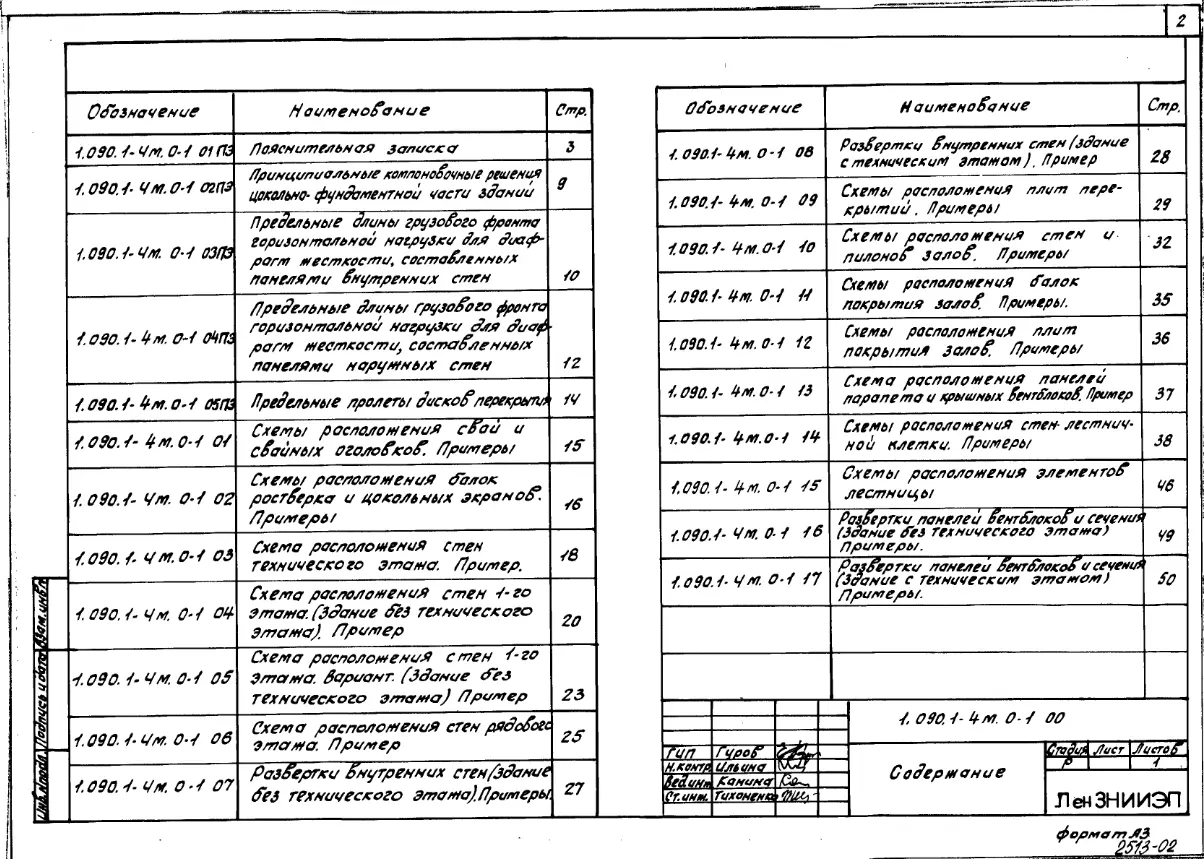 2
Обозначение Наименование Стр.
1.090.1-4м.0-1 01ПЗ Пояснительная записка 3
1.090.1-4м.0-1 02ПЗ Принципиальные компоновочные решения
цокольно-фундаментной части зданий 9
1.090.1-4м.0-1 03ПЗ Предельные длины грузового фронта
горизонтальной нагрузки для диаф-
рагм жесткости, составленных
панелями внутренних стен 10
1.090.1-4м.0-1 04ПЗ Предельные длины грузового фронта
горизонтальной нагрузки для диаф-
рагм жесткости, составленных
панелями наружных стен 12
1.090.1-4м.0-1 05ПЗ Предельные пролеты дисков перекрытия 14
1.090.1-4м.0-1 01 Схемы расположения свай и
свайных оголовков. Примеры 15
1.090.1-4м.0-1 02 Схемы расположения балок
ростверка и цокольных экранов.
Примеры 16
1.090.1-4м.0-1 03 Схема расположения стен
технического этажа. Пример. 18
1.090.1-4м.0-1 04 Схема расположения стен 1-го
этажа. (Здание без технического
этажа). Пример 20
1.090.1-4м.0-1 05 Схема расположения стен 1-го
этажа. Вариант. (Здание без
технического этажа) Пример 23
1.090.1-4м.0-1 06 Схема расположения стен рядового
этажа. Пример 25
1.090.1-4м.0-1 07 Развертки внутренних стен (здание
без технического этажа). Примеры. 27
Обозначение Наименование Стр.
1.090.1-4м.0-1 08 Развертки внутренних стен (здание
с техническим этажом). Пример 28
1.090.1-4м.0-1 09 Схемы расположения плит пере-
крытий. Примеры 29
1.090.1-4м.0-1 10 Схемы расположения стен и
пилонов залов. Примеры 32
1.090.1-4м.0-1 11 Схемы расположения балок
покрытия залов. Примеры. 35
1.090.1-4м.0-1 12 Схемы расположения плит
покрытия залов. Примеры 36
1.090.1-4м.0-1 13 Схема расположения панелей
парапета и крышных вентблоков. Пример 37
1.090.1-4м.0-1 14 Схемы расположения стен лестнич-
ной клетки. Примеры 38
1.090.1-4м.0-1 15 Схемы расположения элементов
лестницы 46
1.090.1-4м.0-1 16 Развертки панелей вентблоков и сечения
(Здание без технического этажа)
Примеры. 49
1.090.1-4м.0-1 17 Развертки панелей вентблоков и сечения
(Здание с техническим этажом)
Примеры. 50
1.090.1-4м.0-1 00
ГИП Гуров
Н.контр Ильина
Вед.инж Канина
Ст.инж. Тихоненко
Содержание
Стадия Лист Листов
Р 1
ЛенЗНИИЭП
формат А3
2513-02
Инв.№подл. Подпись и дата Взам.инв.№